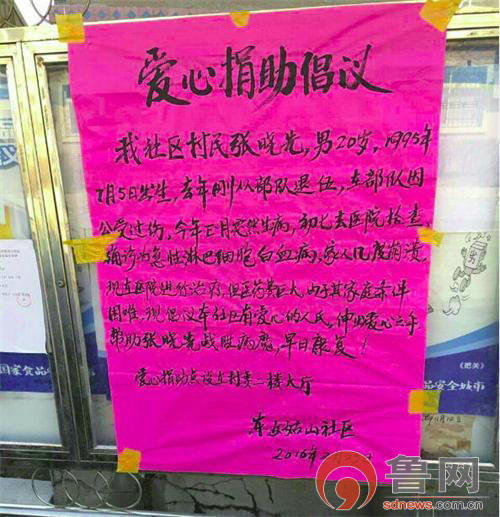 爱心捐助倡议
我社区村民张晓亮，男20岁，1995年
7月5日出生，去年刚从部队退伍，在部队因
公受过伤，今年正月突然生病，初七去医院检查，
确诊为急性淋巴细胞白血病，家人几度崩溃，
现在医院进行治疗，但医药费巨大，由于其家庭条件
困难，现倡议本社区有爱心的人民，伸出爱心之手
帮助张晓亮战胜病魔，早日康复！
爱心捐助点设在村委二楼大厅
东 姑山社区
2016年
国家食品
《把关》
品安全城市
鲁网
sdnews.com.cn